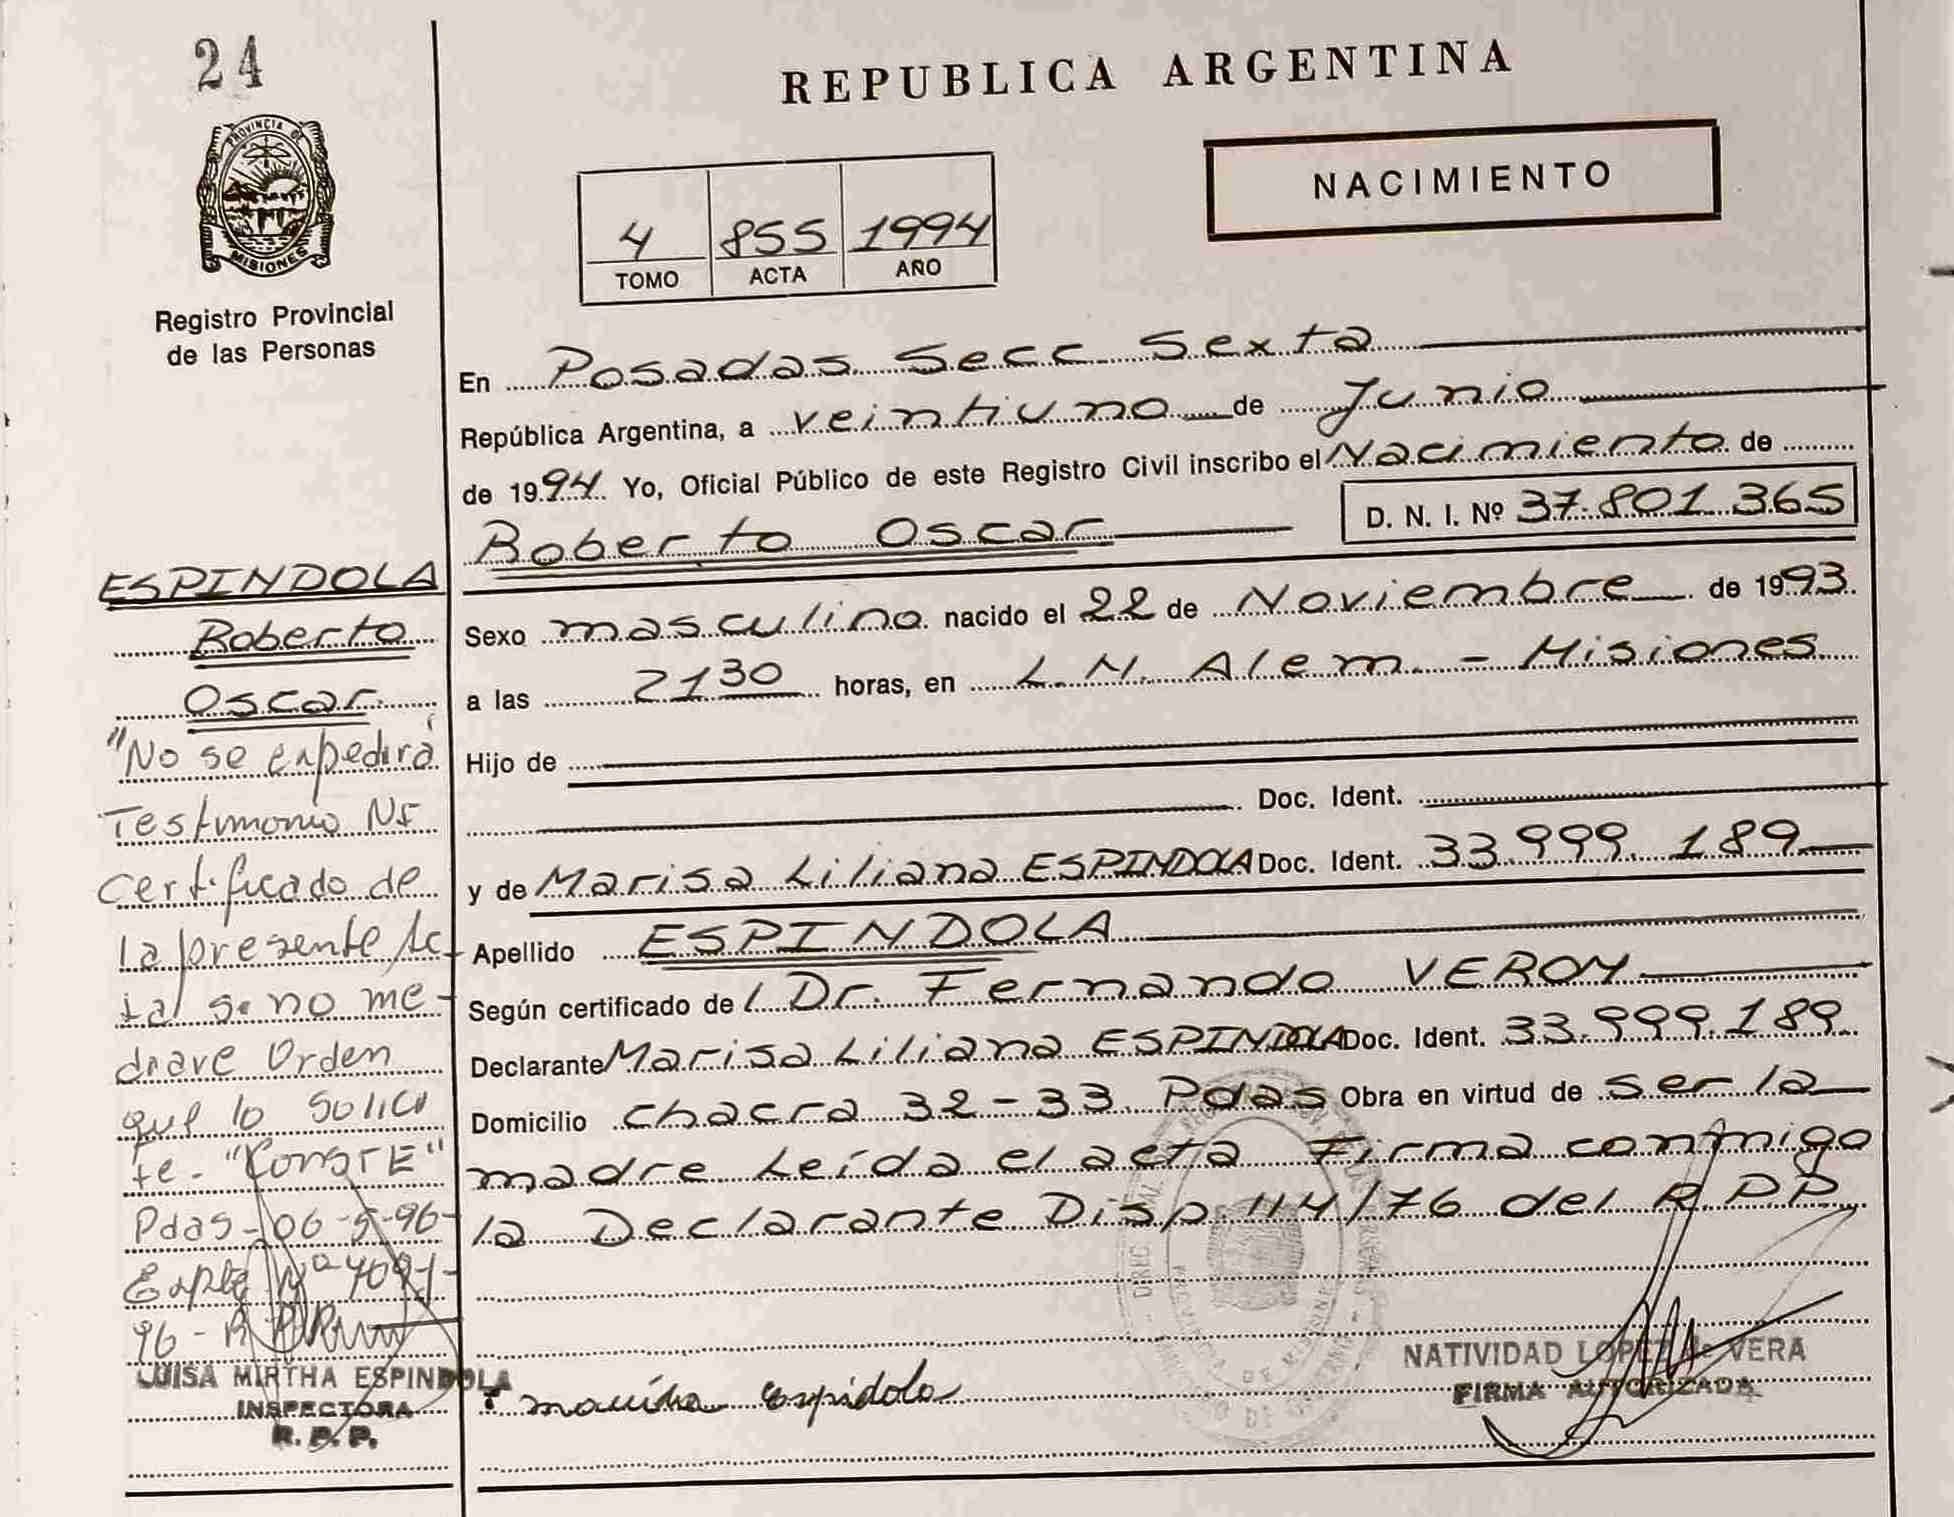 24
PROVINCIA DE
MISIONES
Registro Provincial
de las Personas
REPUBLICA ARGENTINA
NACIMIENTO
4 855 1994
TOMO ACTA AÑO
En Posadas Secc Sexta
República Argentina, a veintiuno de Junio
de 1994 Yo, Oficial Público de este Registro Civil inscribo el Nacimiento de
Roberto Oscar D. N. I. Nº 37.801.365
Sexo masculino nacido el 22 de Noviembre de 1993.
a las 21 30 horas, en L. N. Alem. - Misiones
Hijo de
Doc. Ident.
y de Marisa Liliana ESPINDOLA Doc. Ident. 33.999.189
Apellido ESPINDOLA
Según certificado de Dr. Fernando VERON
Declarante Marisa Liliana ESPINDOLA Doc. Ident. 33.999.189
Domicilio chacra 32-33 Pdas Obra en virtud de ser la
madre Leída el acta Firma conmigo
la Declarante Disp. 114/76 del R.P.P
NATIVIDAD LOPEZ de VERA
FIRMA AUTORIZADA
ESPINDOLA
Roberto
Oscar
"No se expedirá
Testimonio Ni
Certificado de
la presente Ac
ta si no me-
diare Orden
que lo solici
te - "CONSTE"
Pdas - 06-5-96-
Expte Nº 4091-
96 - R
LUISA MIRTHA ESPINDOLA
INSPECTORA
R. P. P.